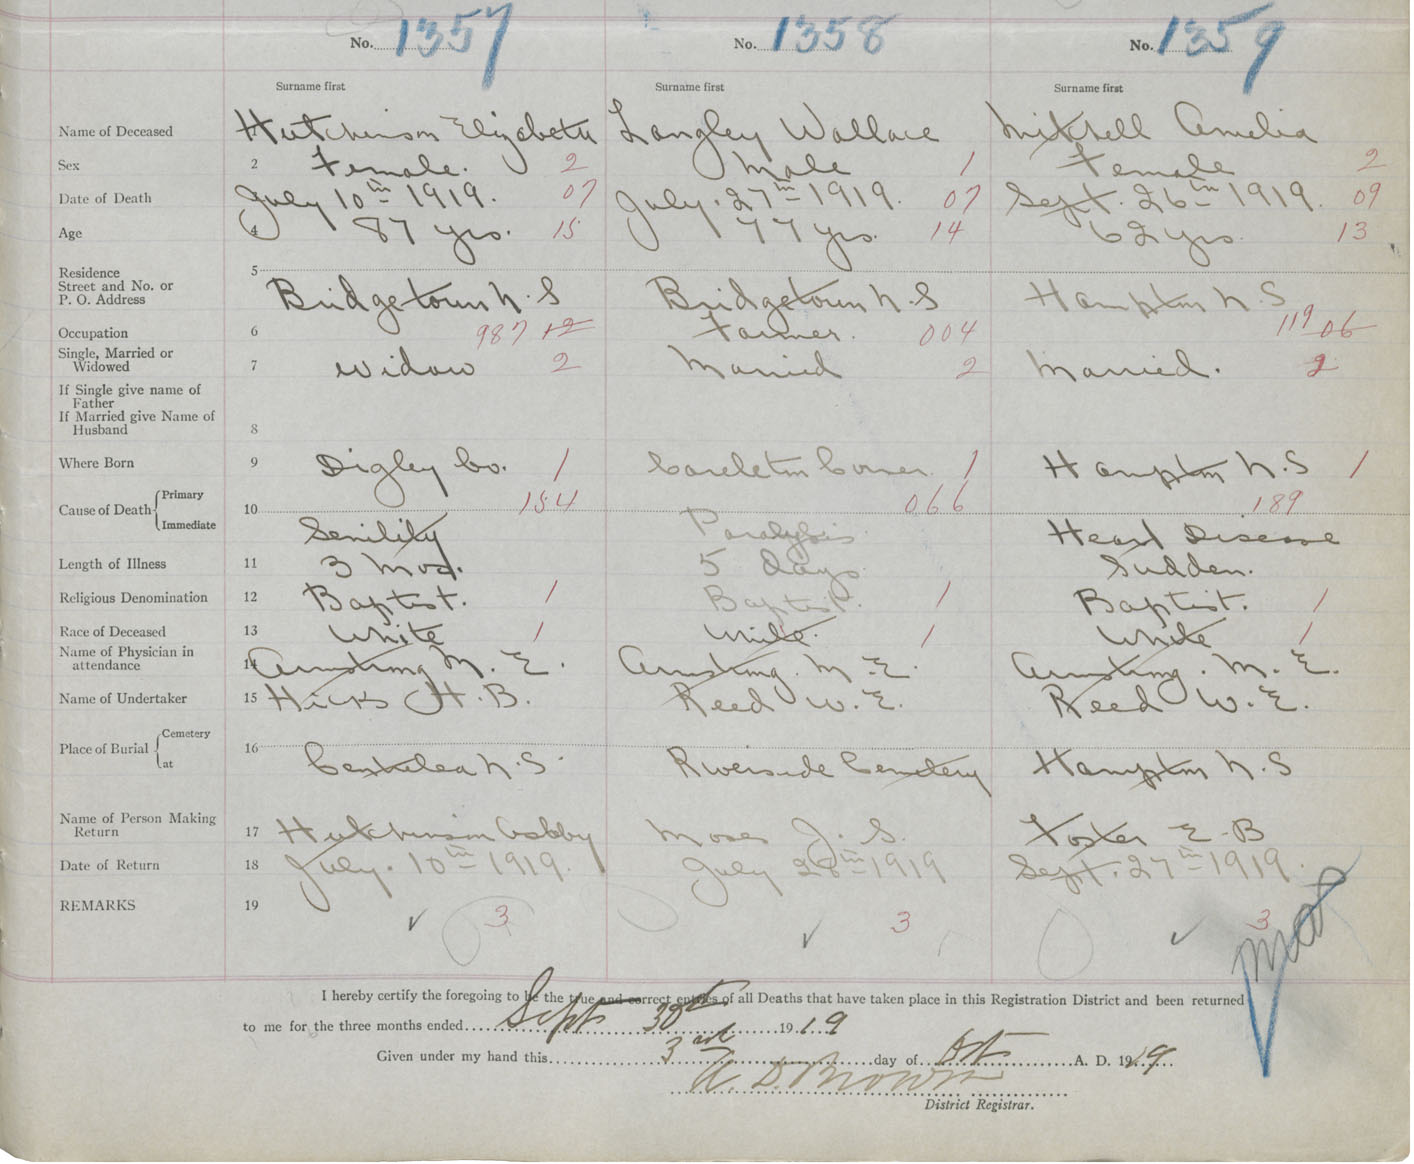 No. 1357 No. 1358 No. 1359
Surname first Surname first Surname first
Name of Deceased 1 Hutchinson Elizabeth Langley Wallace Mitchell Amelia
Sex 2 Female. 2 Male 1 Female 2
Date of Death July 10th 1919. 07 July. 27th 1919. 07 Sept. 26th 1919. 09
Age 4 87 yrs. 15 77 yrs. 14 62 yrs. 13
Residence 5
Street and No. or
P. O. Address Bridgetown N.S Bridgetown N.S Hampton N.S
Occupation 6 987 12 Farmer. 004 119 06
Single, Married or
Widowed 7 Widow 2 Married 2 Married. 2
If Single give name of
Father
If Married give Name of
Husband 8
Where Born 9 Digley Co. 1 Carleton Corner. 1 Hampton N.S 1
Cause of Death Primary 10 154 066 189
Immediate Senility Paralysis Heart Disease
Length of Illness 11 3 mos. 5 days Sudden.
Religious Denomination 12 Baptist. 1 Baptist. 1 Baptist. 1
Race of Deceased 13 White 1 White. 1 White 1
Name of Physician in
attendance 14 Armstrong M. E. Armstrong. M. E. Armstrong. M. E.
Name of Undertaker 15 Hicks H. B. Reed W. E. Reed W. E.
Place of Burial Cemetery 16
at Centrelea N.S. Riverside Cemetery Hampton N.S
Name of Person Making
Return 17 Hutchinson Moses J. S. Foster E. B
Date of Return 18 July. 10th 1919. July 28th 1919 Sept. 27th 1919.
REMARKS 19 ✓ 3 ✓ 3 ✓ 3
I hereby certify the foregoing to be the true and correct entries of all Deaths that have taken place in this Registration District and been returned
to me for the three months ended Sept 30th 1919
Given under my hand this 3rd day of Oct A. D. 1919
A. D. Brown
District Registrar.